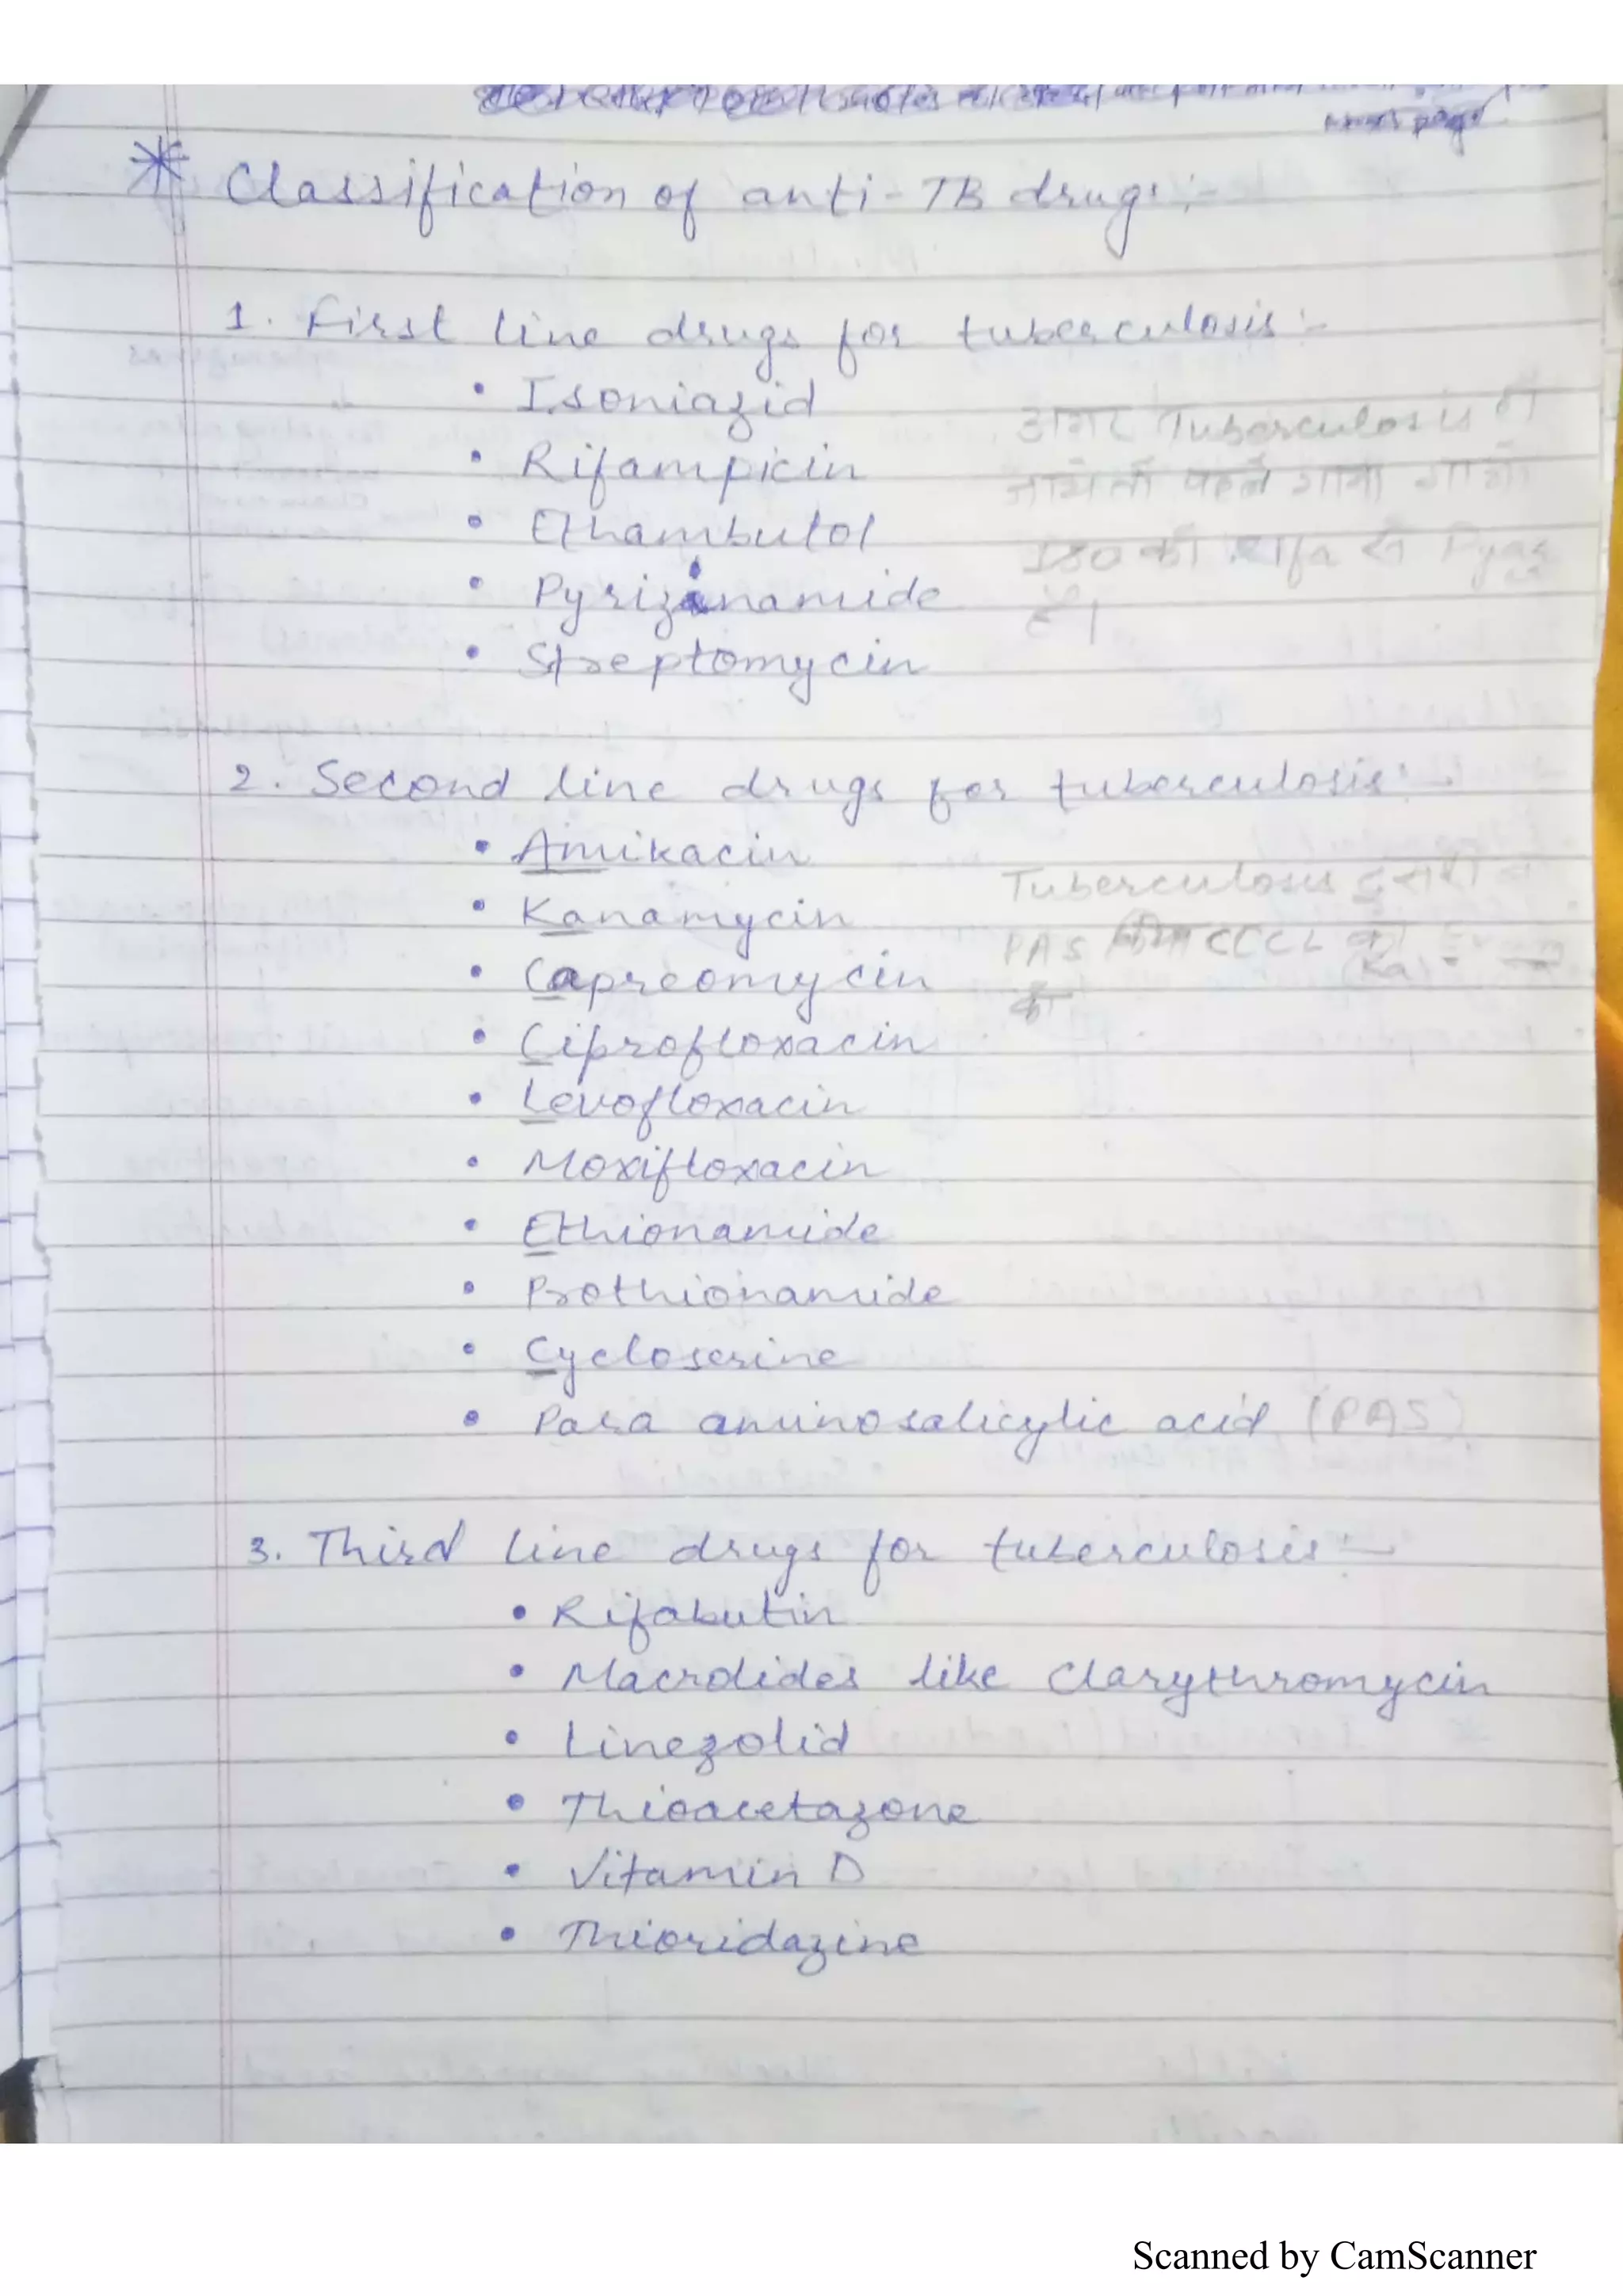 next page
* Classification of anti-TB drugs :-
1. First line drugs for tuberculosis :-
• Isoniazid
अगर Tuberculosis हो
• Rifampicin
जाये तो पहले गाना गाओ
• Ethambutol
ISO को Rifa से Pyar
• Pyrizinamide
है।
• Streptomycin
2. Second line drugs for tuberculosis :-
• Amikacin
Tuberculosis
• Kanamycin
PAS CCCL को
(Ka)
• Capreomycin
का
• Ciprofloxacin
• Levofloxacin
• Moxifloxacin
• Ethionamide
• Prothionamide
• Cycloserine
• Para aminosalicylic acid (PAS)
3. Third line drugs for tuberculosis :-
• Rifabutin
• Macrolides like Clarythromycin
• Linezolid
• Thioacetazone
• Vitamin D
• Thioridazine
Scanned by CamScanner